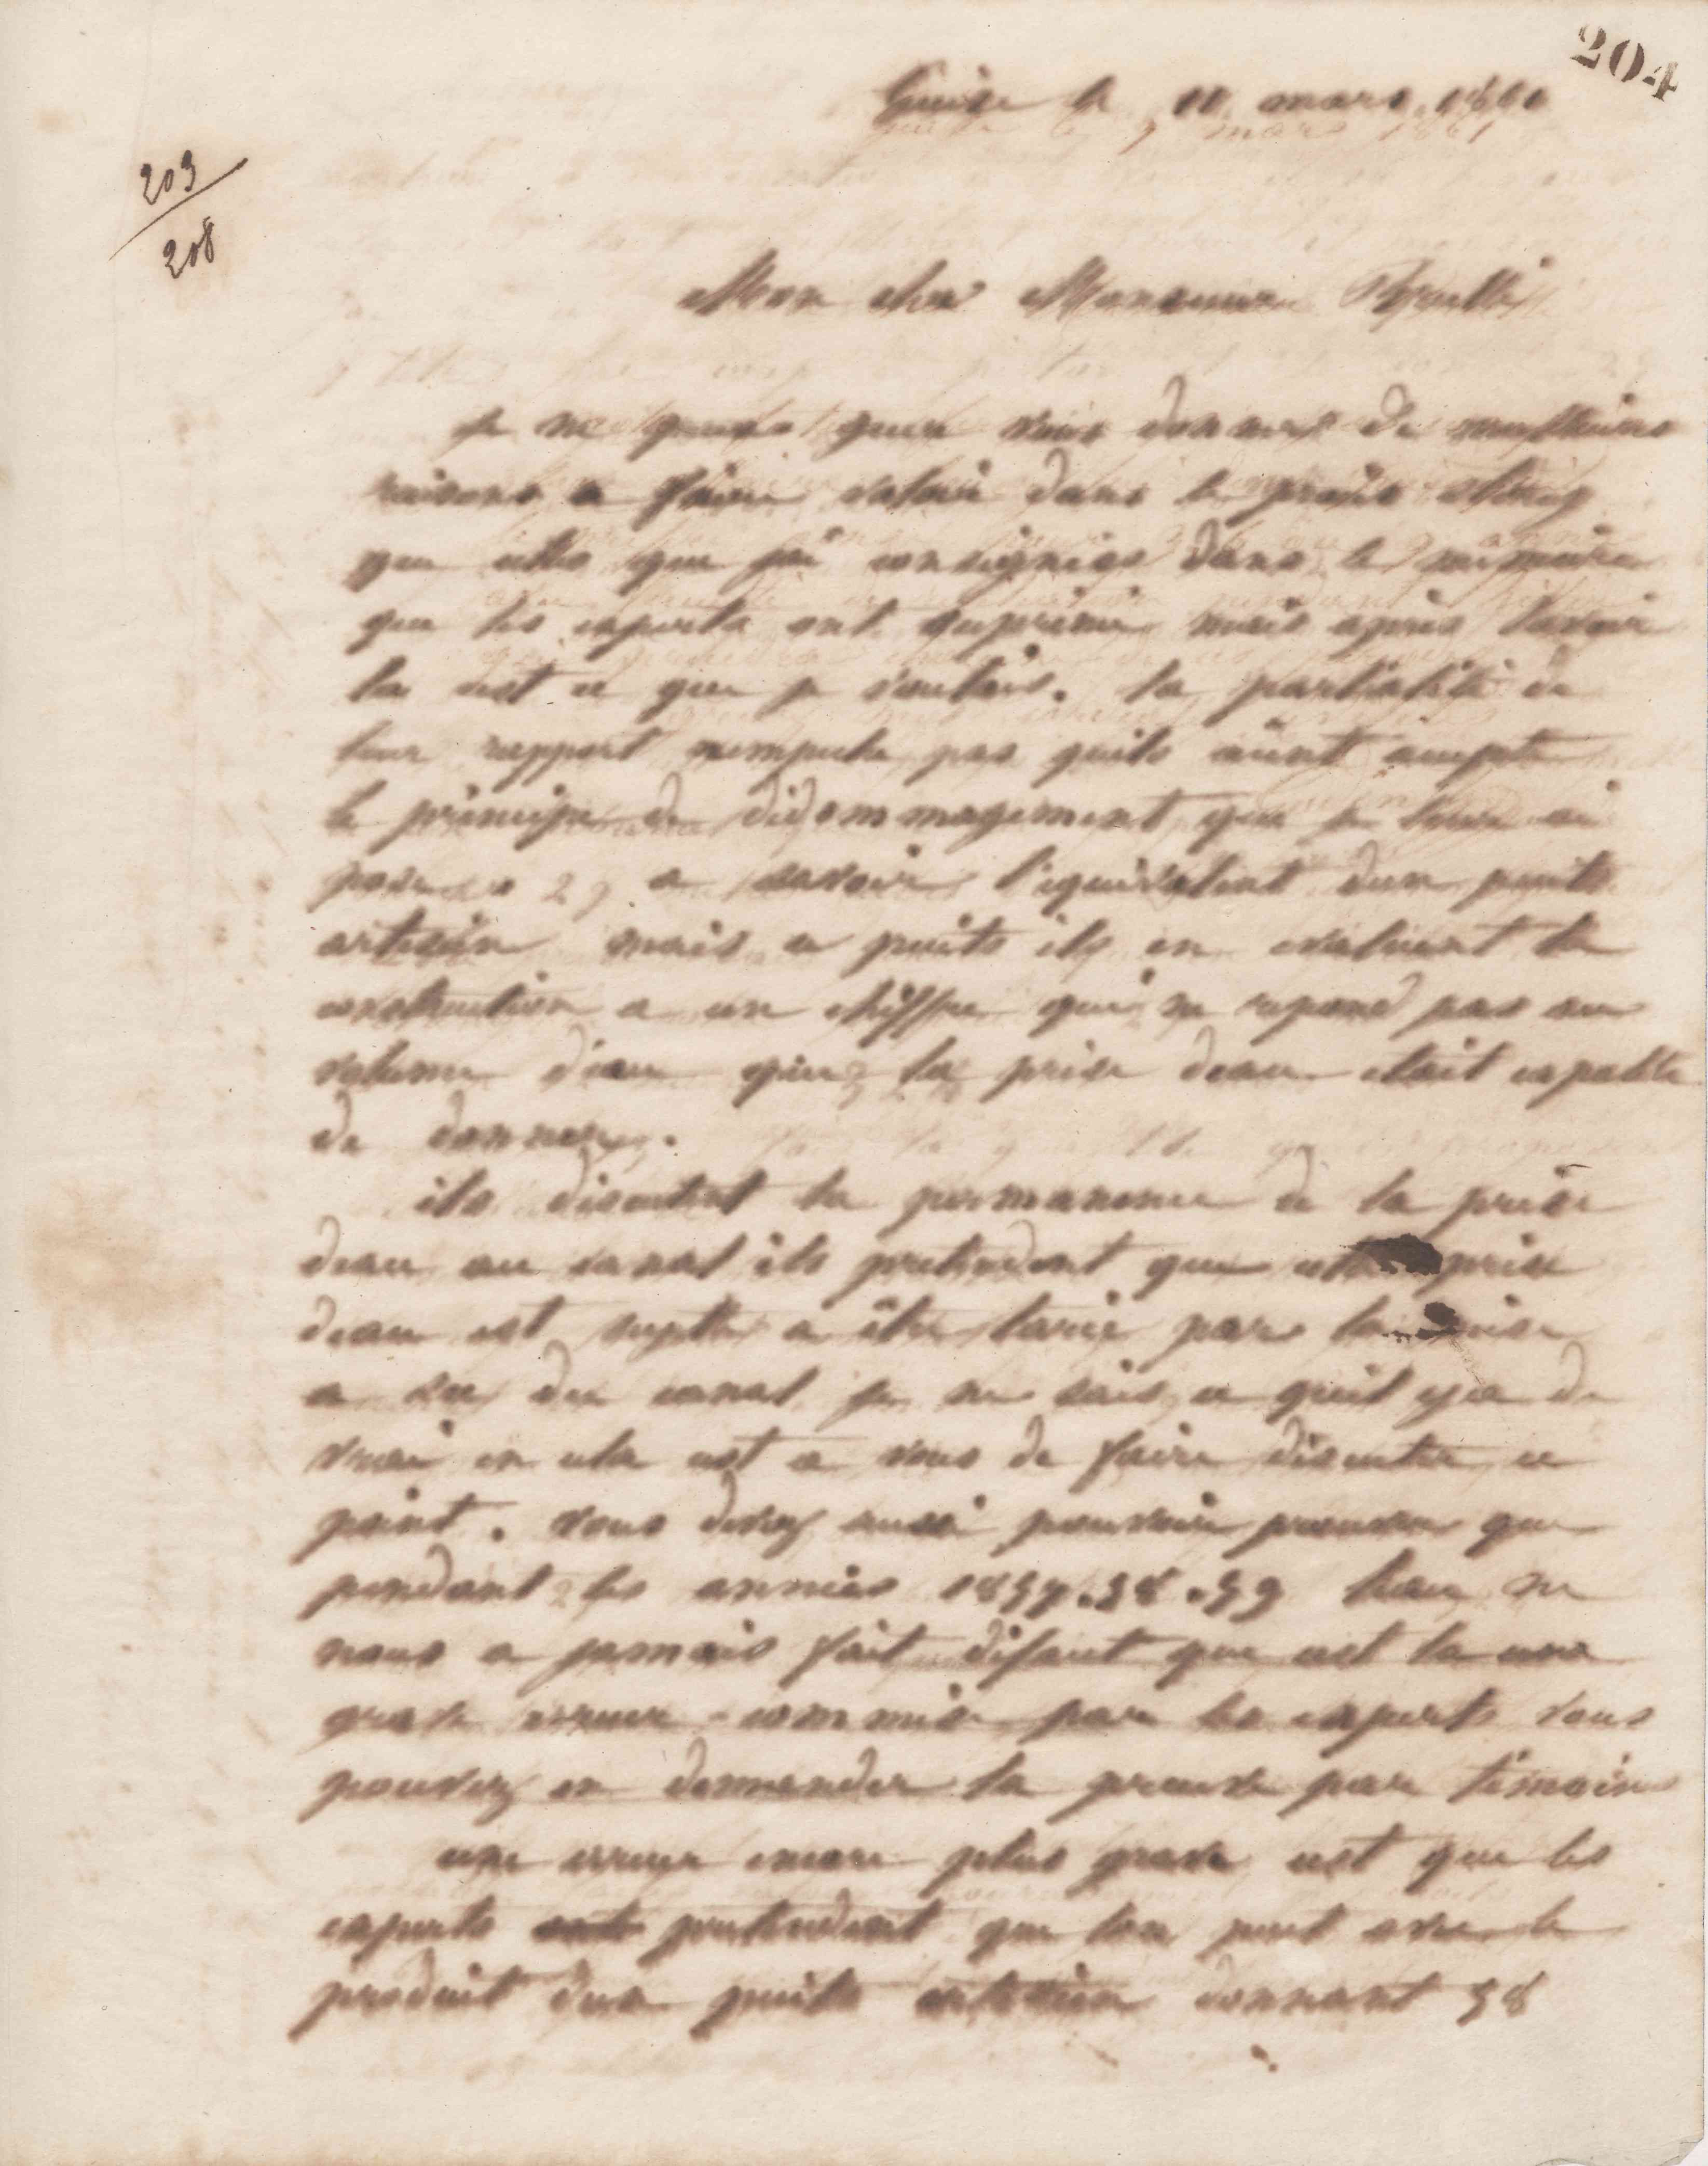 204
203
208
Guise le 11 mars 1861
Mon cher Monsieur
je ne peux guere vous donner de meilleures
raisons a faire valoir dans le procès
que celles que jai consignées dans le mémoire
que les experts ont suprimé mais après lavoir
lu cest ce que je voulais. la partialité de
leur rapport nempeche pas quils aient accepté
le principe de dédommagement que je leur ai
posé a savoir l'equivalent dun puits
artesien mais ce puits ils en evaluent la
construction a un chiffre qui ne repond pas au
volume d'eau que la prise deau etait capable
de donner.
ils discutent la permanence de la prise
deau au canal ils pretendent que cette prise
deau est sujette a être tarie par la mise
a sec du canal je ne sais ce quil y a de
vrai en cela cest a vous de faire discuter ce
point. vous devez aussi pouvoir prouver que
pendant les années 1857.58.59 leau ne
nous a jamais fait défaut que cest la une
grave erreur commise par les experts vous
pouvez en demander la preuve par témoins
une erreur encore plus grave cest que les
experts pretendent que lon peut avec le
produit dun puits artesien donnant 58